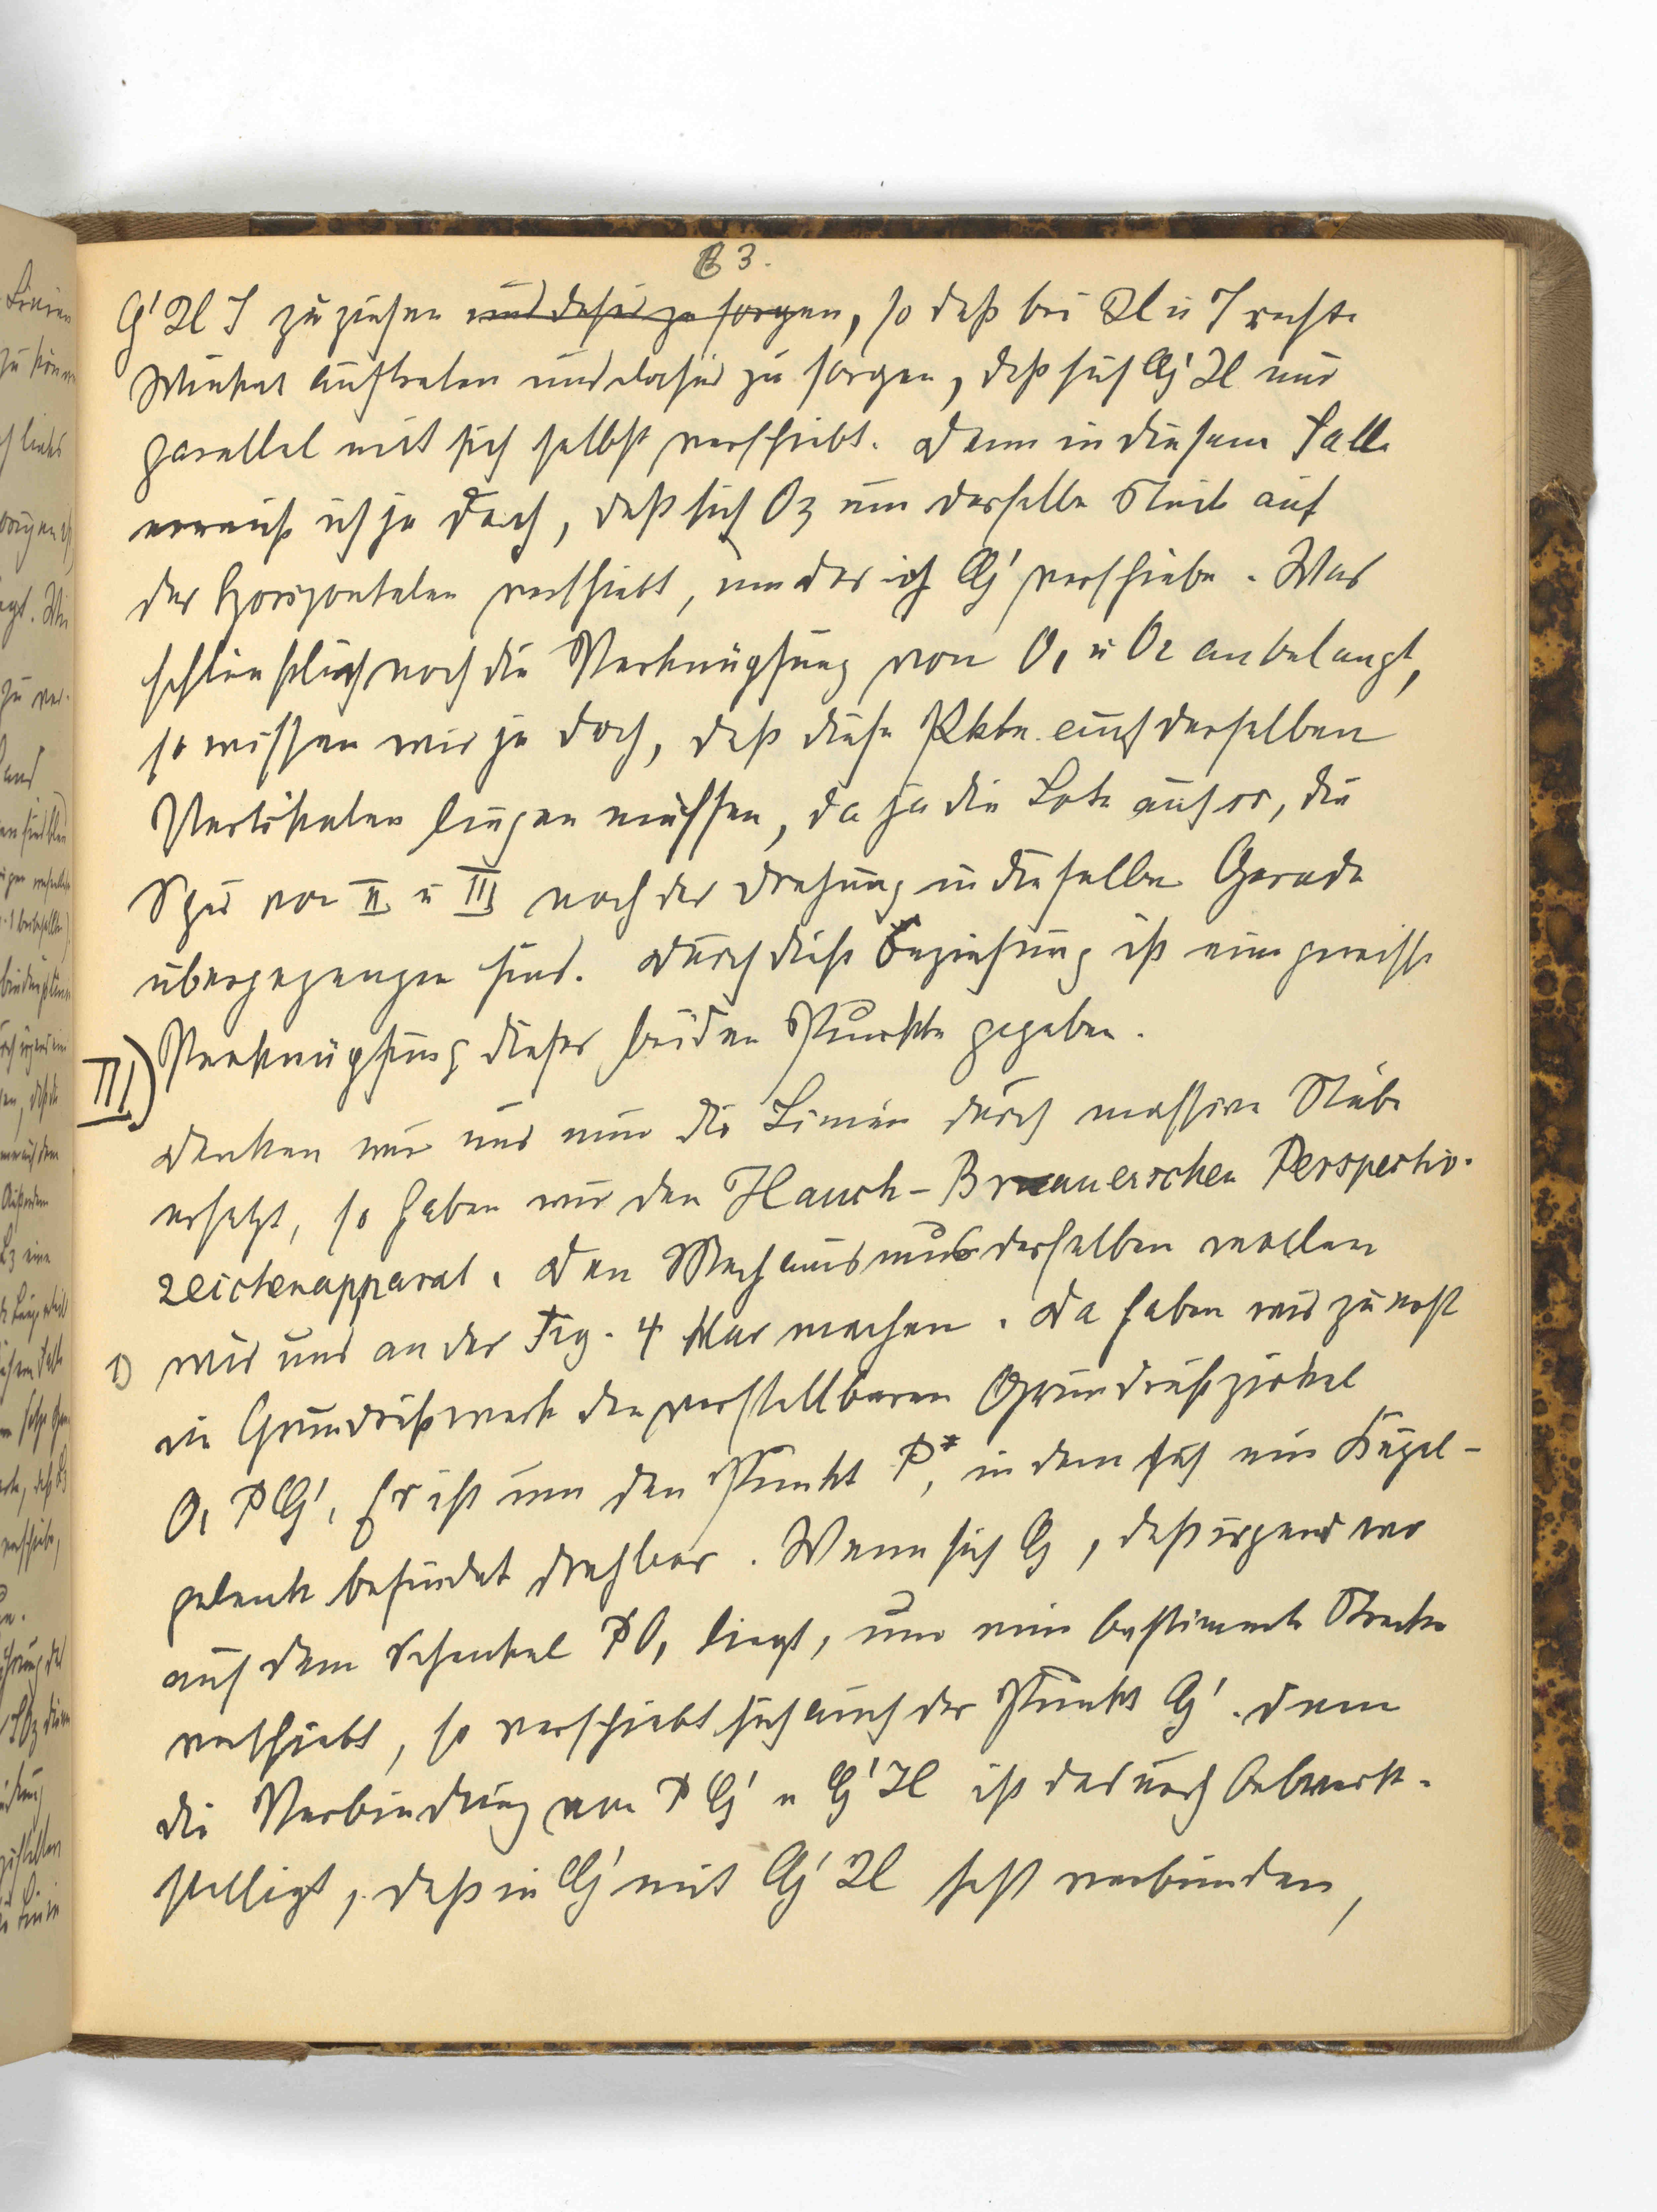 83.
G' H J zu ziehen und dafür zu sorgen, so daß bei H u J rechte
Winkel auftreten und dafür zu sorgen, daß sich G' H nur
parallel mit sich selbst verschiebt. Denn in diesem Falle
erreiche ich ja doch, daß sich O3 um dasselbe Stück auf
der Horizontalen verschiebt, um das ich G' verschiebe. Was
schließlich noch die Verknüpfung von O1 u O2 anbelangt,
so wissen wir ja doch, daß diese Pkte. auf derselben
Vertikalen liegen müssen, da ja die Lote auf ss, die
Spur von II u III nach der Drehung in dieselbe Gerade
übergegangen sind. Durch diese Beziehung ist eine gewisse
Verknüpfung dieser beiden Punkte gegeben.
III)
Denken wir uns nun die Linien durch massive Stäbe
ersetzt, so haben wir den Hauck-Brauerschen Perspectiv-
zeichenapparat. Den Mechanismus desselben wollen
1) wir uns an der Fig. 4 klar machen. Da haben wir zunächst
im Grundrißwerk den verstellbaren Grundrißzirkel
O1 P G'. Er ist um den Punkt P*, in dem sich ein Kugel-
gelenk befindet drehbar. Wenn sich G, daß irgend wo
auf dem Schenkel PO1 liegt, um eine bestimmte Strecke
verschiebt, so verschiebt sich auch der Punkt G'. Denn
die Verbindung von P G' u G' H ist dadurch bewerk-
stelligt, daß in G' mit G' H fest verbunden,